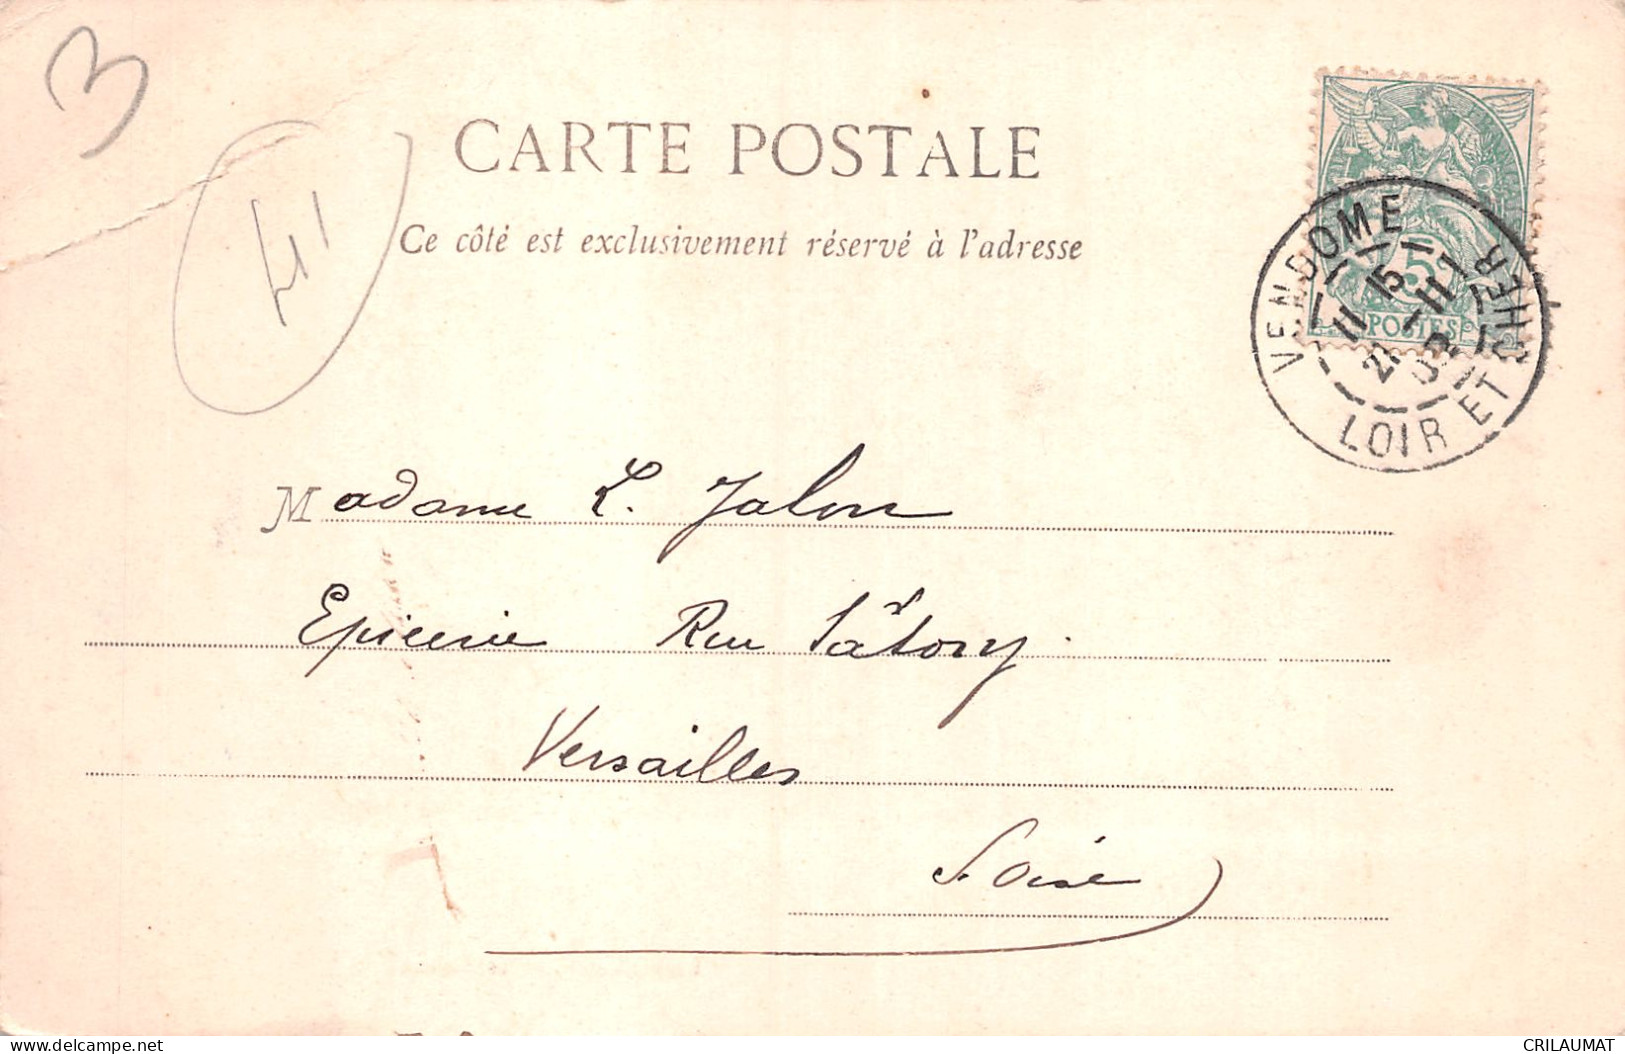 3
41
CARTE POSTALE
Ce côté est exclusivement réservé à l'adresse
5c
POSTES
VENDOME
11 15
21 -11
02
LOIR ET CHER
Madame L. Jalon
Epicerie Rue Satory.
Versailles
S. Oise
CRILAUMAT